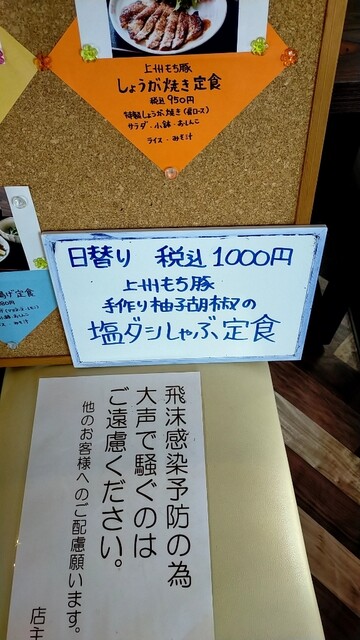 上州もち豚
しょうが焼き定食
税込950円
特製しょうが焼き(肩ロース)
サラダ・小鉢・おしんこ
ライス・みそ汁
げ定食
日替り 税込1000円
上州もち豚
手作り柚子胡椒の
塩ダシしゃぶ定食
飛沫感染予防の為
大声で騒ぐのは
ご遠慮ください。
他のお客様へのご配慮願います。
店主